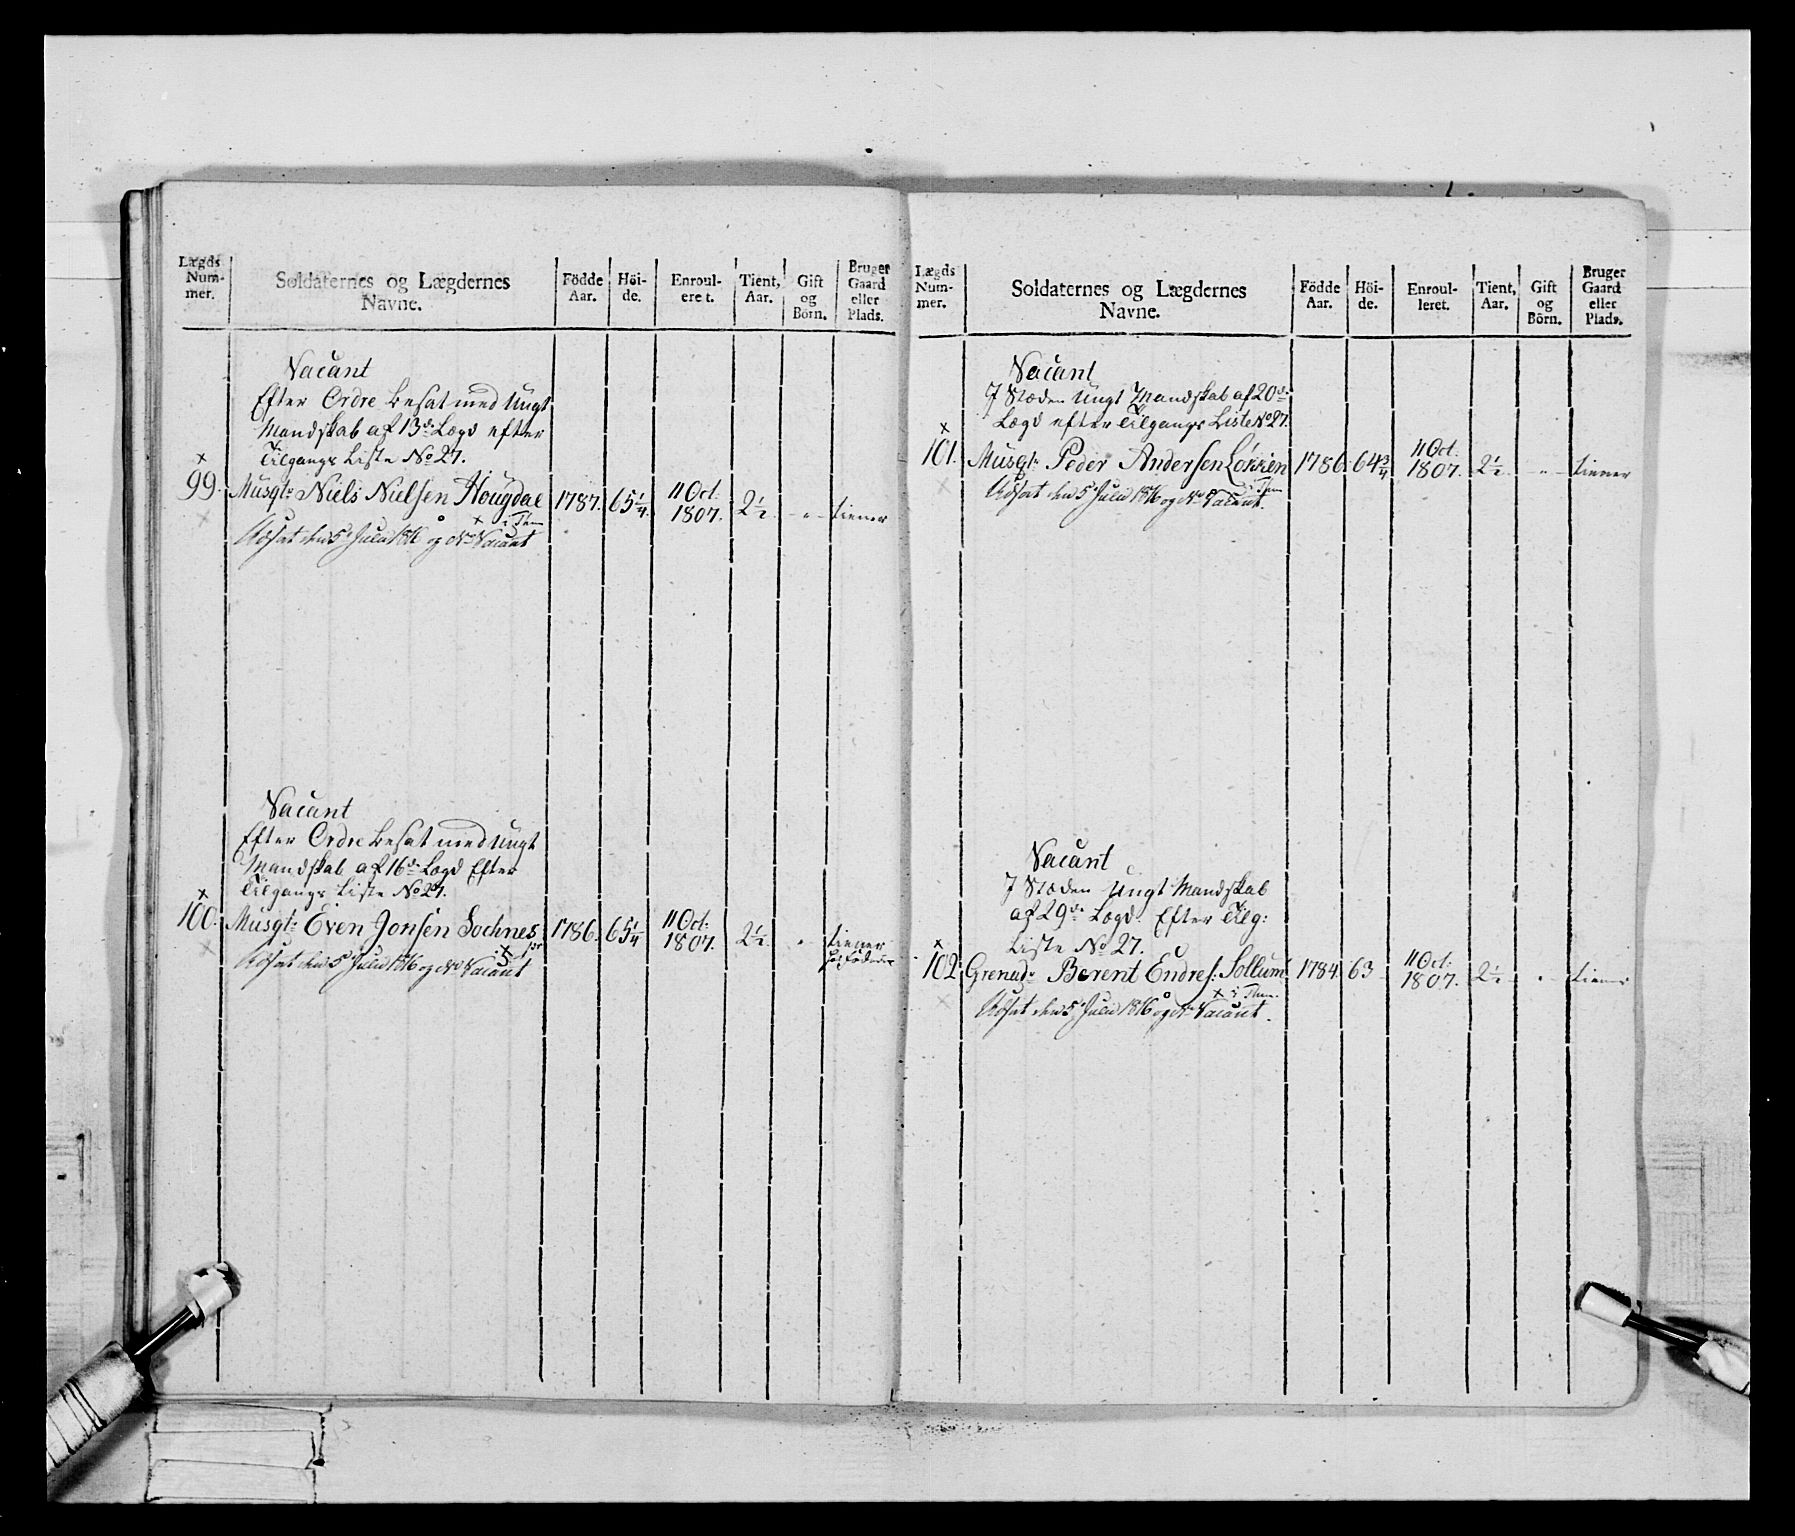 Lægds Num-mer. Soldaternes og Lægdernes Navne. Födde Aar. Höi-de. Enroul-eret. Tient, Aar. Gift og Börn. Bruger Gaard eller Plads.
Vacant
Efter Ordre besat med Ungt
Mandskab af 13de Lægd efter
Tilgangs Liste No 27.
99. Musqt: Niels Nielsen Hougdal 1787. 65 1/4. 11 Oct. 1807. 2 1/2. - " - tiener
Udsat den 5 Julii 1816 og No Vacant
Vacant
Efter Ordre besat med Ungt
Mandskab af 16de Lægd Efter
Tilgangs Liste No 27.
100. Musqt: Even Jonsen Sochnes 1786. 65 1/4 11 Oct: 1807. 2 1/2. " tiener
Udsat den 5 Julii 1816 og No Vacant
Lægds Num-mer. Soldaternes og Lægdernes Navne. Födde Aar. Höi-de. Enroul-leret. Tient, Aar. Gift og Börn. Bruger Gaard eller Plads.
Vacant
I Stæden Ungt Mandskab af 20de
Lægd efter Tilgangs Liste No 27.
101. Musqt: Peder Andersen Löxien 1786. 64 3/4 11 Oct. 1807. 2 1/2. - " - tiener
Udsat den 5 Julii 1816 og No Vacant.
Vacant
I Stæden Ungt Mandskab
af 29de Lægd. Efter Tilg:
Liste No 27.
102. Grenad: Berent Endres: Sollum 1784. 63 - 11 Oct: 1807. 2 1/2 - " - tiener
Udsat den 5 Julii 1816 og No Vacant.